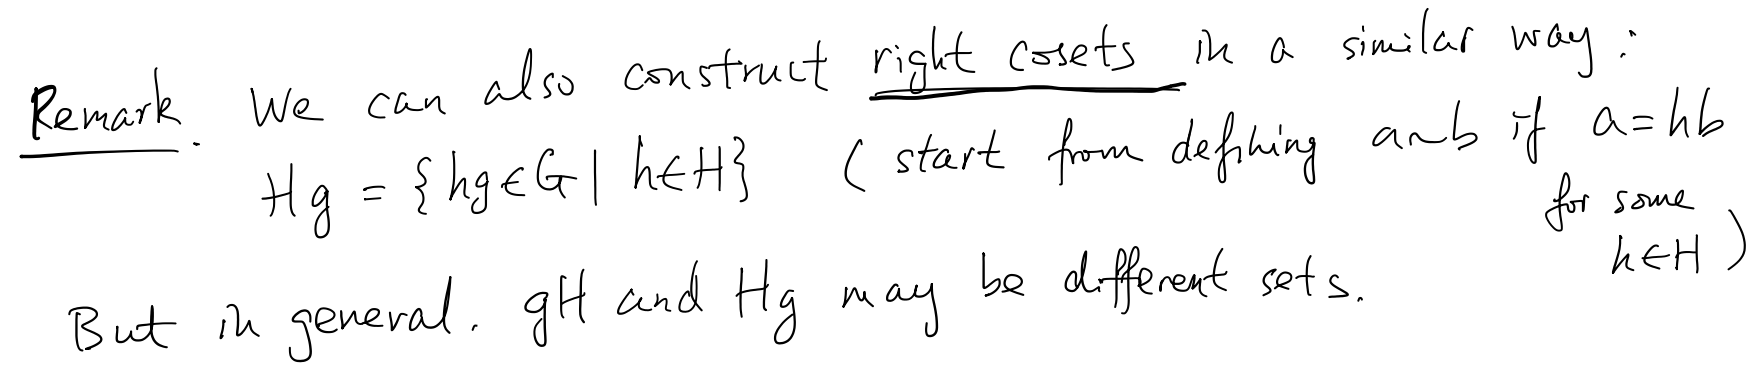 Remark. We can also construct right cosets in a similar way:
Hg = {hg∈G | h∈H} ( start from defining a~b if a=hb
for some
h∈H )
But in general. gH and Hg may be different sets.